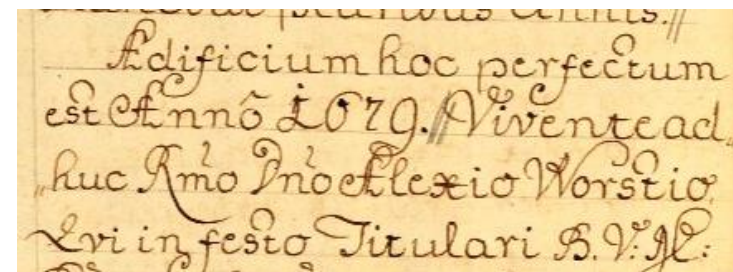 pluribus annis.//
Ædificium hoc perfectum
est Annô 1679.// Vivente ad„
„huc Rmo Dno Alexio Worstio.
Qvi in festo Titulari B. V. M: